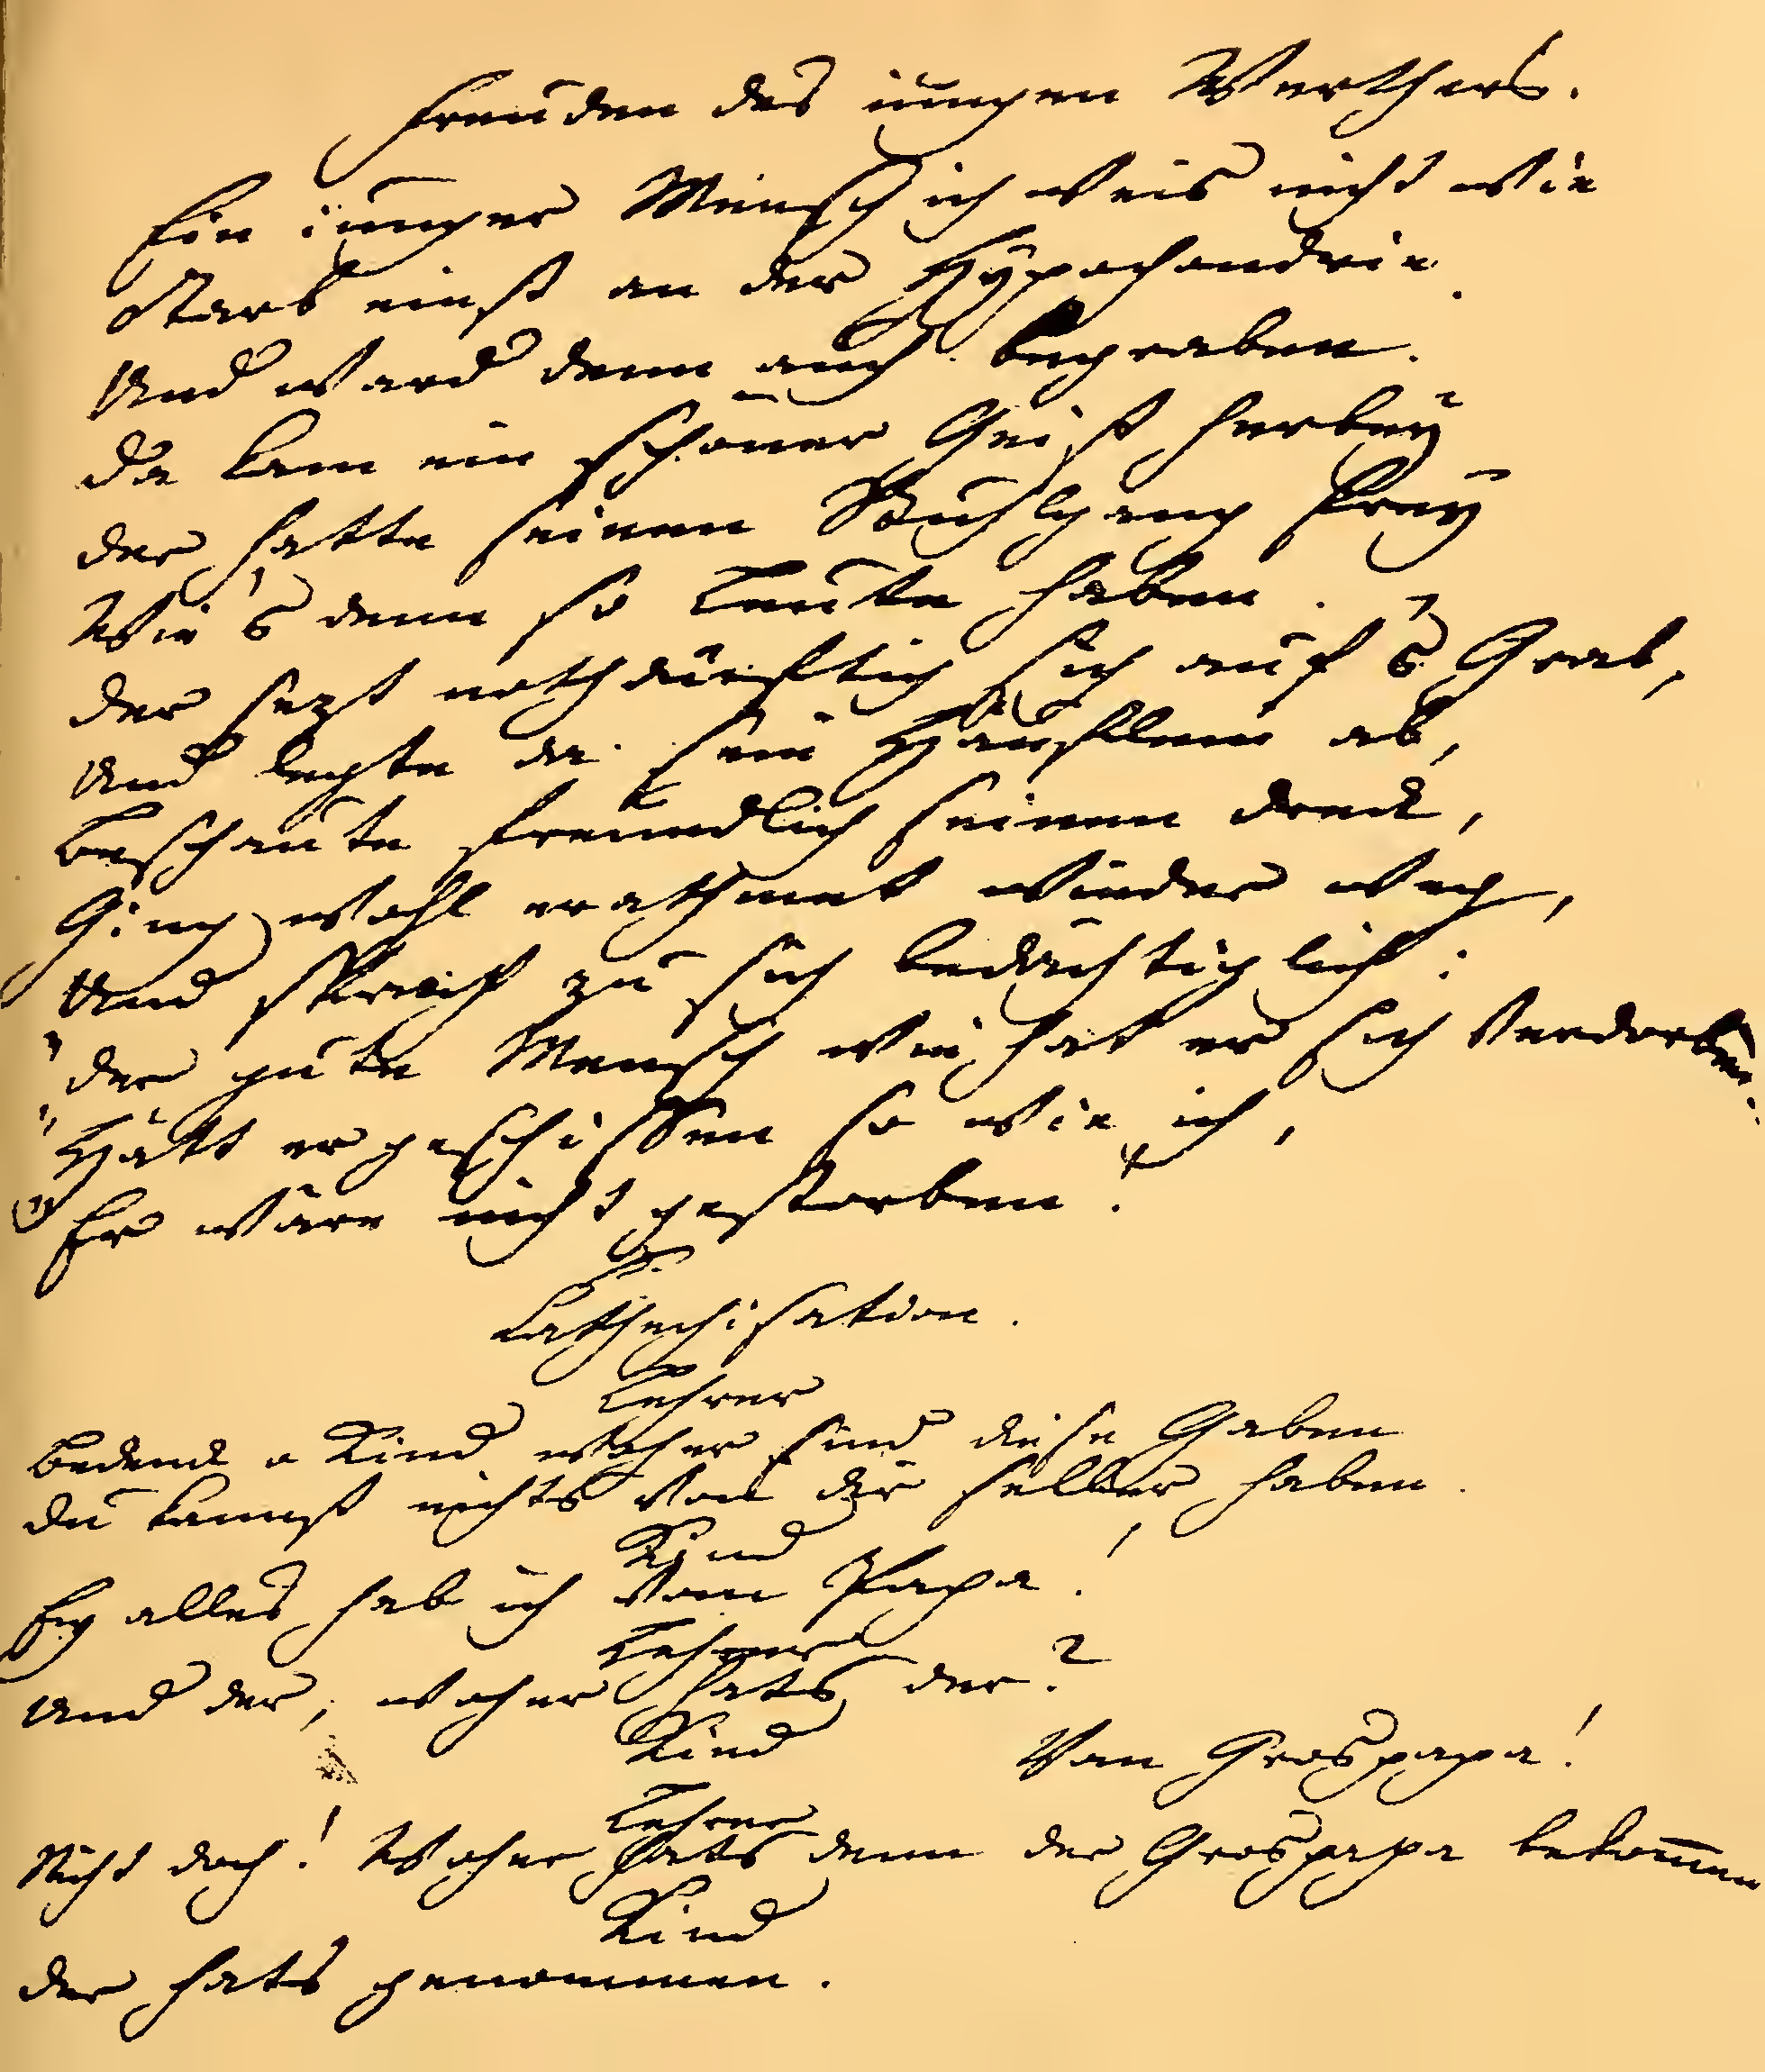 Freuden des iungen Werthers.
Ein iunger Mensch ich weis nicht wie
Starb einst an der Hypochondrie
Und ward denn auch begraben.
Da kam ein schöner Geist herbey
der hatte seinen Stuhlgang frey
Wie's denn so Leute haben.
Der sezt nothdürftig sich auf's Grab,
Und legte da sein Häuflein ab,
Beschaute freundlich seinen Dreck,
Ging wohl erathmet wieder weg,
Und sprach zu sich bedächtiglich:
"Der gute Mensch wie hat er sich verdorben
"Hätt er geschissen so wie ich,
"Er wäre nicht gestorben!
Cathechisation.
Lehrer
Bedenck o Kind woher sind diese Gaben
du kannst nichts von dir selber haben.
Kind
Ey alles hab ich vom Papa!
Lehrer
Und der, woher hats der?
Kind
Von Grospapa!
Lehrer
Nicht doch! Woher hats denn der Grospapa bekom̅en
Kind
Der hats genommen.